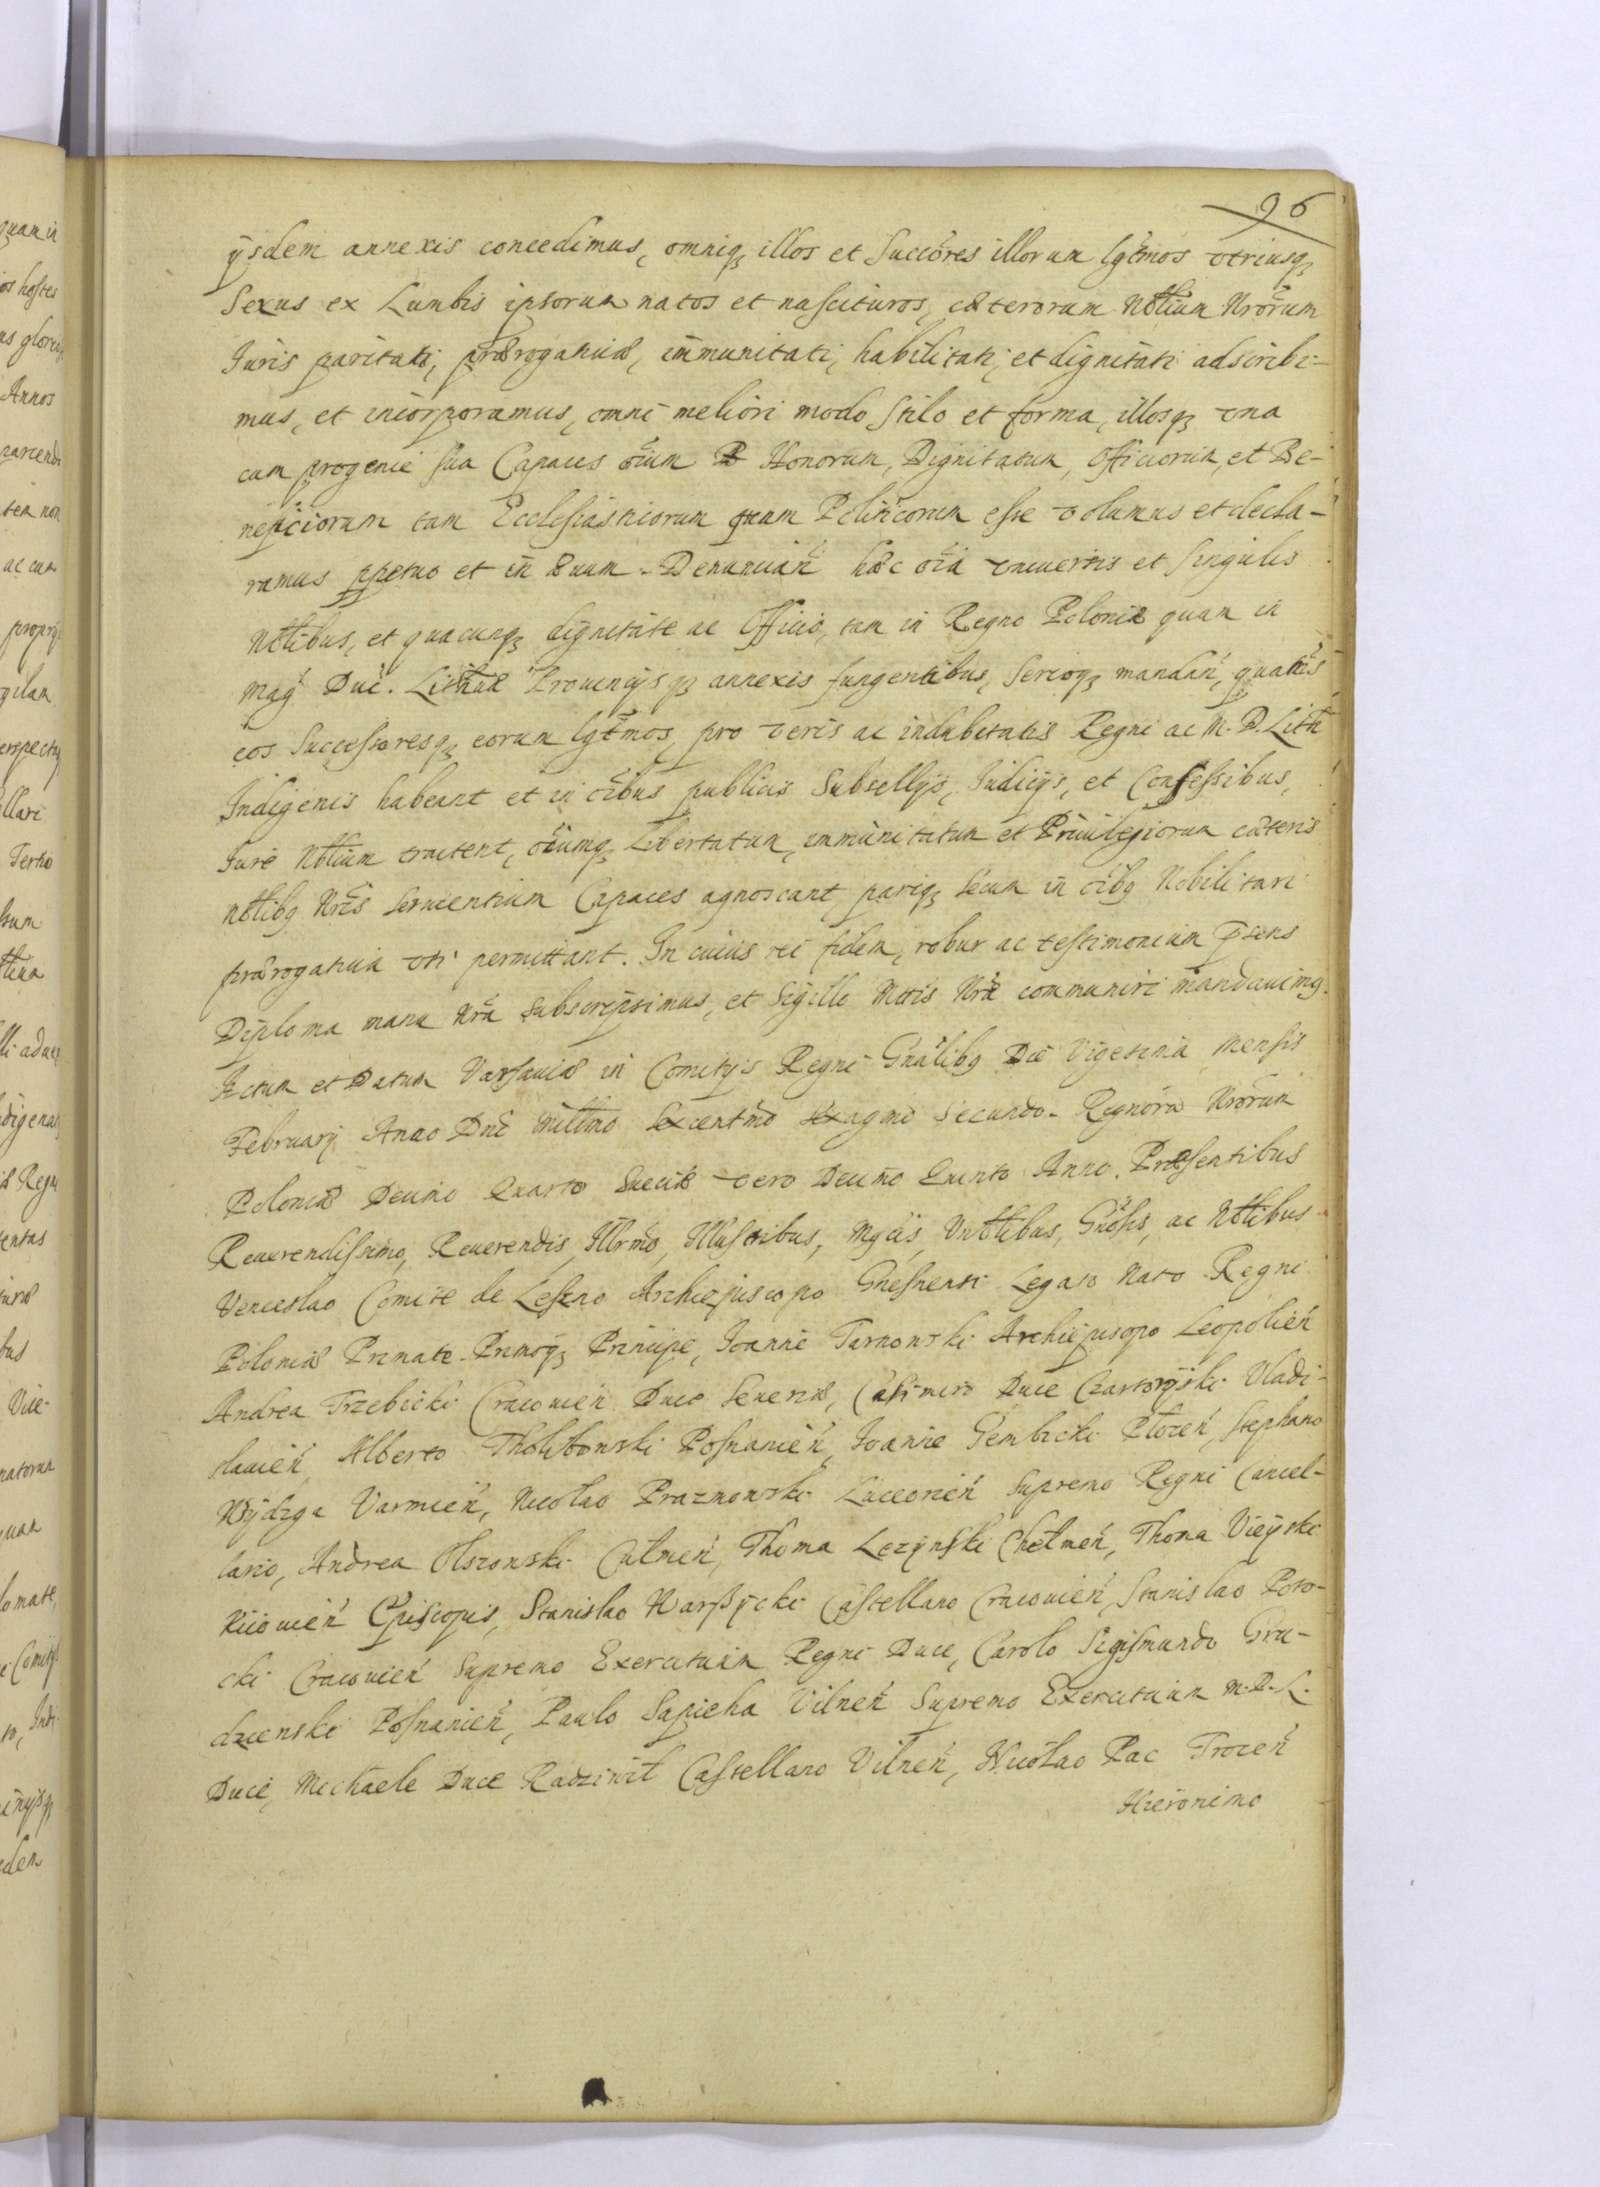 96
ijsdem annexis concedimus, omniq₃ illos et Succ͠ores illorum lg͠tmos utriusq₃
Sexus ex Lumbis ipsorum natos et nascituros, cæterorum Nobiliũm Nr͠orum
Juris paritati, prærogativæ, im̃munitati, habilitati, et dignitati adscribi-
mus, et incorporamus, omni meliori modo stilo et forma, illosq₃ una
cum progenie sua Capaces oĩum Honorum, Dignitatum, Officiorum, et Be-
neficiorum tam Ecclesiasticorum quam Politicorum esse volumus et decla-
ramus ꝑpetuo et in ævum. Denuncian͂ hæc oĩa universis et singulis
Nõtlibus, et quacunq₃ dignitate ac Officio, tam in Regno Poloniæ quam in
Mag͂ Duc͂. Lith͂uæ Provincijsq₃ annexis fungentibus, serioq₃ mandan͂, quat͂s
eos Successoresq₃ eorum lg͠tmos, pro veris ac indubitatis Regni ac M. D. Lith͂
Indigenis habeant et in oĩbus publicis Subsellijs, Judicijs, et Consessibus,
Jure Nõtlium tractent, oĩumq₃ Libertatum, immunitatum et Privilegiorum cæteris
nõtlibꝯ Nrĩs servientium Capaces agnoscant pariq₃ secum in oĩbꝯ Nobilitari
prærogativa uti permittant. In cuius rei fidem, robur ac testimonium p͠sens
Diploma manu Nr͠a subscripsimus, et Sigillo Mttis Nr͠æ communiri mandavimꝯ.
Actum et Datum Varsaviæ in Comitijs Regni Gnãlibꝯ Die Vigesima Mensis
Februarij Anno Dnĩ Mill͠mo Sexcent͠mo sexag͠mo secundo. Regnor͠u Nr͠orum
Poloniæ Decimo Quarto Sueciæ vero Decimo Quinto Anno. Præsentibus
Reverendissimo, Reverendis, Illr͠mo, Illustribus, Mgcis, Vnõtlibus, Gnõsis, ac Nõtlibus
Venceslao Comite de Leszno Archiepiscopo Gnesnensi Legato Nato Regni
Poloniæ Primate Primoq₃ Principe, Joanne Tarnowski Archiepiscopo Leopolien͂
Andrea Trzebicki Cracovien͂ Duce Severiæ, Casimiro Duce Czartoryski Vladi-
slavien͂, Alberto Tholibowski Posnanien͂, Joanne Gembicki Płocen͂, Stephano
Wÿdzga Varmien͂, Nicolao Prazmowski Luceorien͂ Supremo Regni Cancel-
lario, Andrea Olszowski Culmen͂, Thoma Lezynski Chełmen͂, Thoma Vieyski
Kiiovien͂ Episcopis, Stanislao Warszycki Castellano Cracovien͂, Stanislao Poto-
cki Cracovien͂ Supremo Exercituum Regni Duce, Carolo Sigismundo Gru-
dzienski Posnanien͂, Paulo Sapieha Vilnen͂ Supremo Exercituum M. D. L.
Duce, Michaele Duce Radziwił Castellano Vilnen͂, Nicolao Pac Trocen͂
Hieronimo